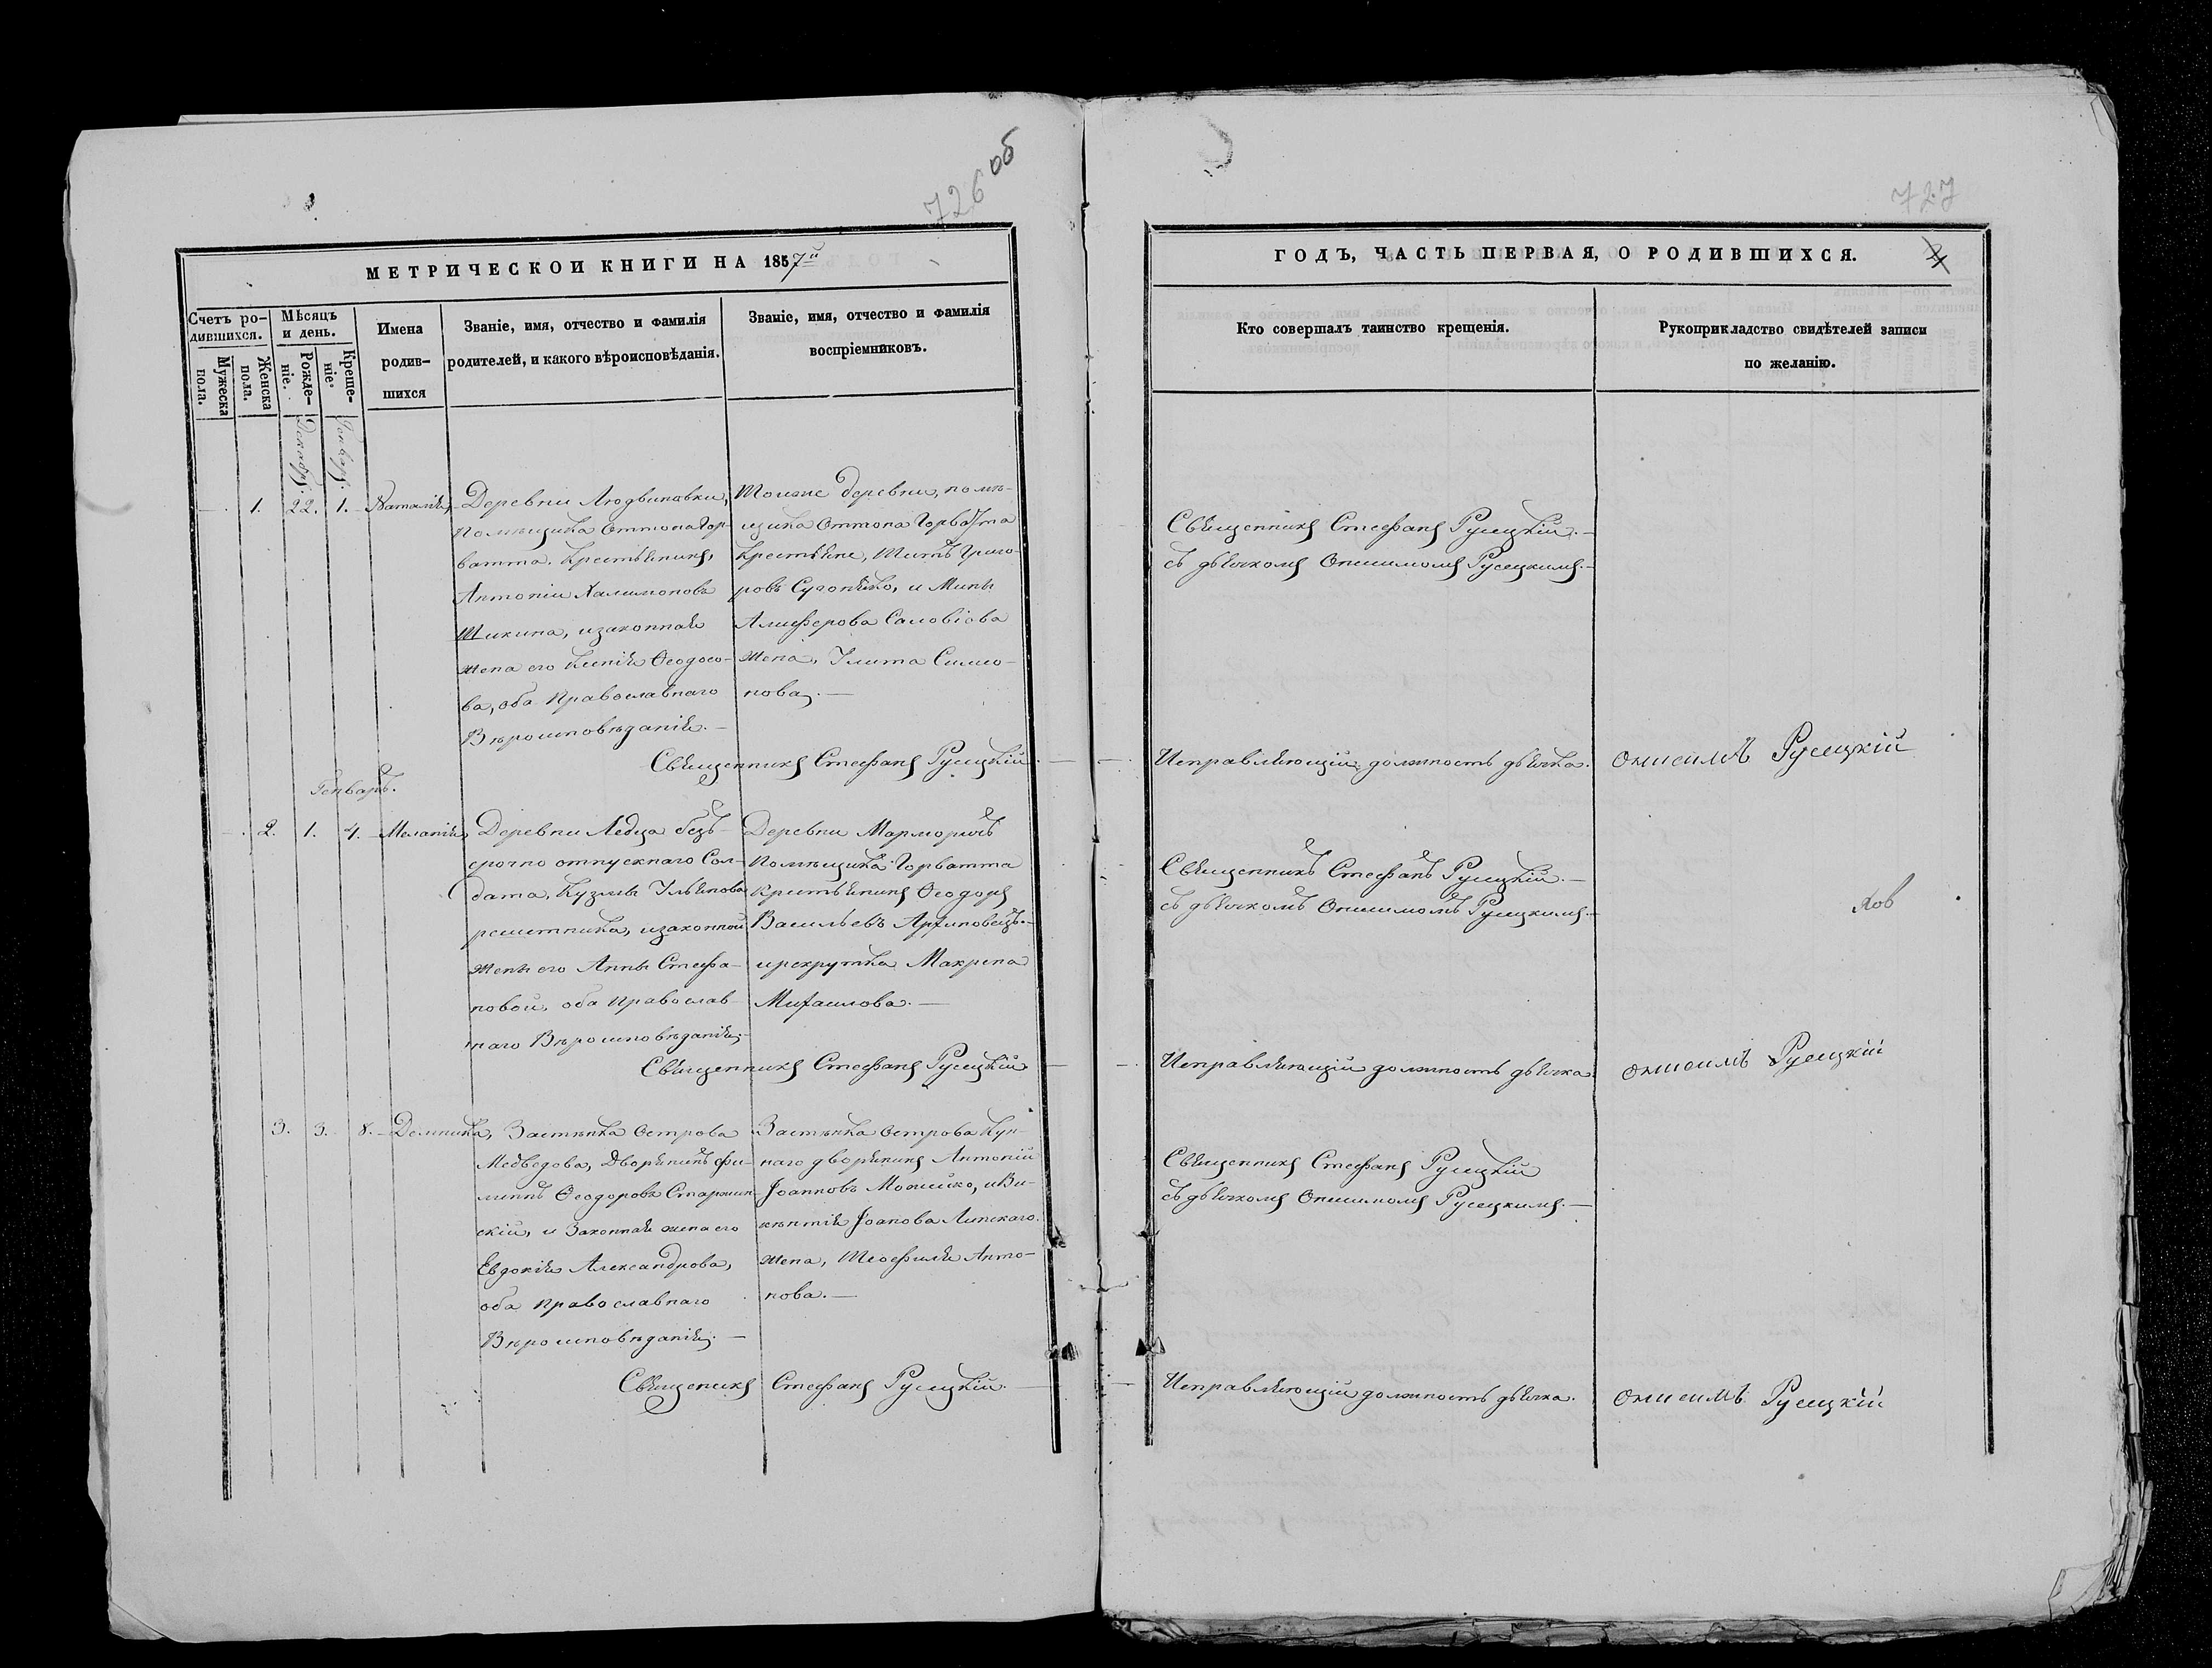 726 об
МЕТРИЧЕСКОИ КНИГИ НА 1857й
Счетъ ро-
дившихся.
Мужеска
пола.
Женска
пола.
Мѣсяцъ
и день.
Рожде-
ніе.
Креще-
ніе
Имена
родив-
шихся
Званіе, имя, отчество и фамилія
родителей, и какого вѣроисповѣданія.
Званіе, имя, отчество и фамилія
воспріемниковъ.
Декабрь.
Генварь.
1. 22. 1. Наталія,
Деревни Людвиновки,
Помѣщика Оттона Гор-
ватта, Крестьянинъ,
Антоній Халимоновъ
Шикина, и законная
жена его Ксенія Ѳеодосо-
ва, оба Православнаго
Вѣроисповѣданія.
Тойже деревни, помѣ-
щика Оттона Горватта
Крестьяне, Титъ Григо-
ровъ Сугоняко, и Мины
Алиферова Саловіова
жена, Улита Симео-
нова.
Священникъ Стефанъ Русецкій.
Генварь.
2. 1. 4. Меланія,
Деревни Ледца безъ-
срочно отпускнаго Сол-
дата, Кузмы Ульянова
решетника, и законной
жены его Анны Стефа-
новой, оба Православ-
наго Вѣроисповѣданія,
Деревни Марморичъ
Помѣщика Горватта
Крестьянинъ Ѳеодоръ
Васильевъ Архиповецъ.
и рекрутка Макрена
Михаилова.
Священникъ Стефанъ Русецкій
3. 3. 8. Домника,
Застѣнка Острова
Медведова, Дворянинъ Фи-
липпъ Ѳеодоровъ Старжин-
скій, и Законная жена его
Евдокія Александрова,
оба Православнаго
Вѣроисповѣданія.
Застѣнка Острова Куп-
наго дворянинъ Антоній
Іоанновъ Можейко, и Ви-
кентія Іоанова Липскаго
жена, Теофиля Анто-
нова.
Священникъ Стефанъ Русецкій.
727
ГОДЪ, ЧАСТЬ ПЕРВАЯ, О РОДИВШИХСЯ.
Кто совершалъ таинство крещенія.
Рукоприкладство свидѣтелей записи
по желанію.
Священникъ Стефанъ Русецкій.
съ дьячкомъ Онисимомъ Русецкимъ.
Исправляющій должность дьячка. Онисимъ Русецкій
Священникъ Стефанъ Русецкій.
съ дьячкомъ Онисимомъ Русецкимъ.
Исправляющій должность дьячка. Онисимъ Русецкій
Священникъ Стефанъ Русецкій
съ дьячкомъ Онисимомъ Русецкимъ.
Исправляющій должность дьячка. Онисимъ Русецкій